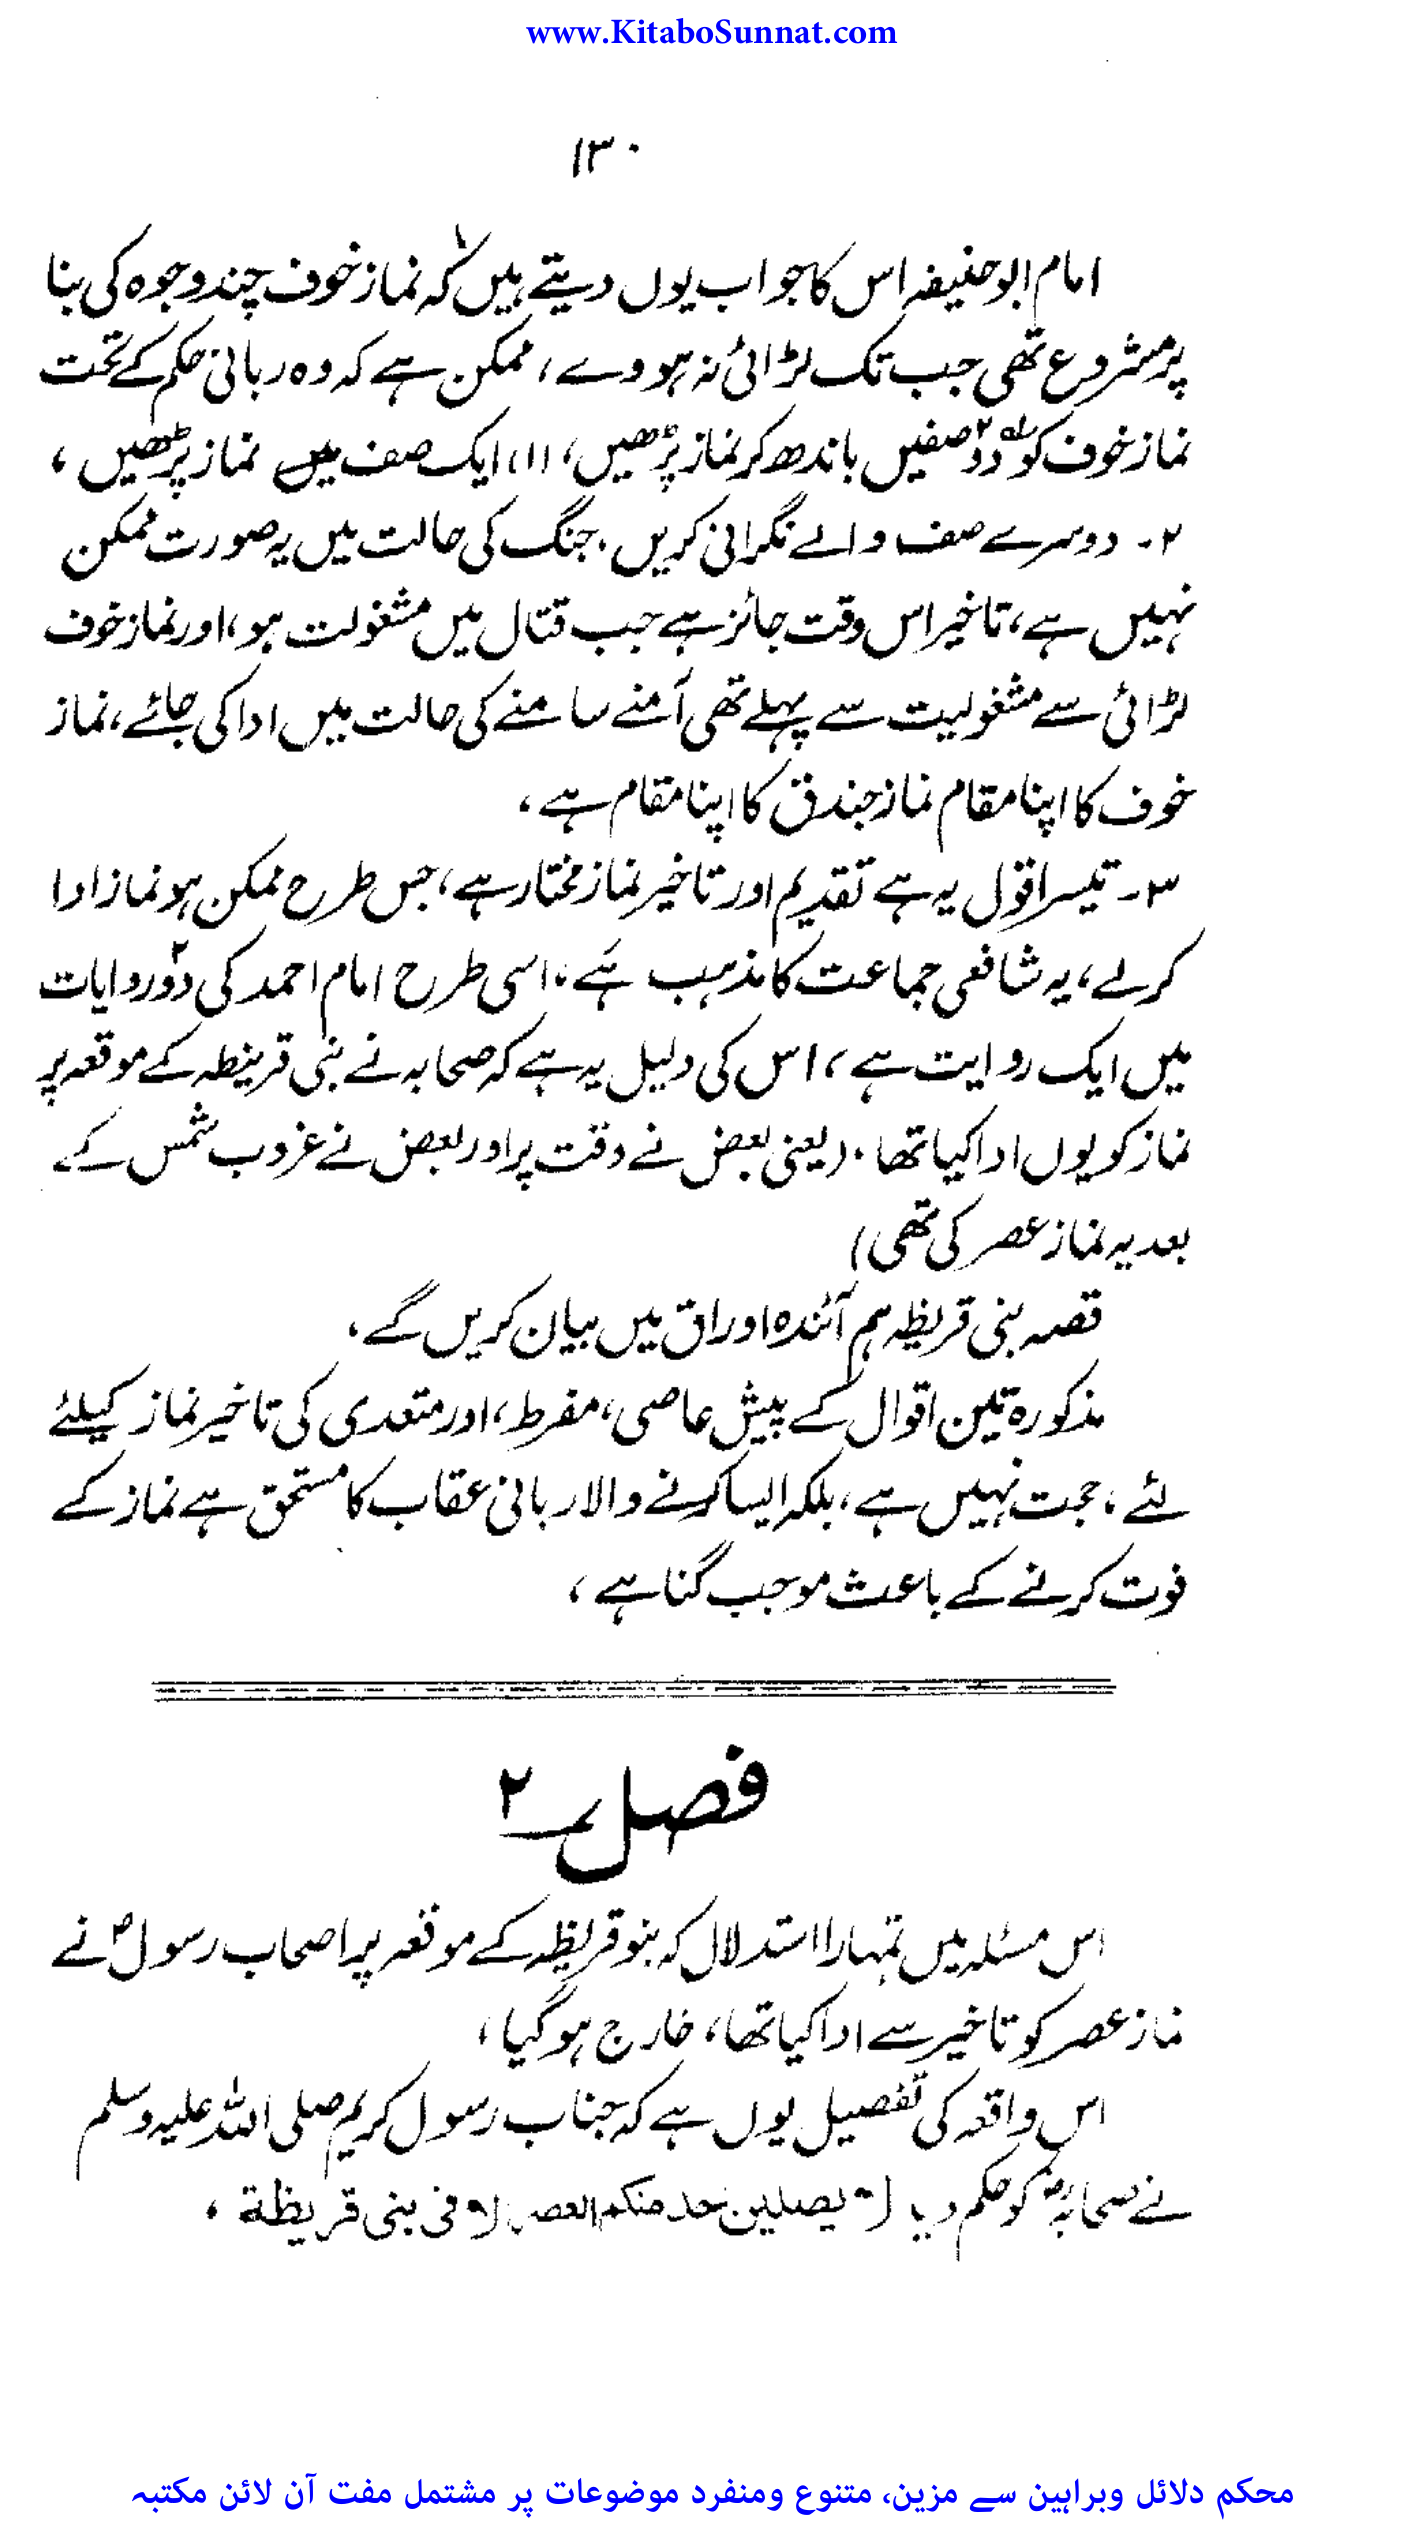 www.KitaboSunnat.com
۱۳۰
امام ابو حنیفہ اس کا جواب یوں دیتے ہیں کہ نماز خوف چند وجوہ کی بنا
پر مشروع تھی جب تک لڑائی نہ ہووے، ممکن ہے کہ وہ ربانی حکم کے تحت
نماز خوف کو دو صفیں باندھ کر نماز پڑھیں، (۱) ایک صف میں نماز پڑھیں،
۲۔ دوسرے صف والے نگرانی کریں۔ جنگ کی حالت میں یہ صورت ممکن
نہیں ہے، تاخیر اس وقت جائز ہے جب قتال میں مشغولت ہو، اور نماز خوف
لڑائی سے مشغولیت سے پہلے تھی آمنے سامنے کی حالت میں ادا کی جائے، نماز
خوف کا اپنا مقام نماز جندق کا اپنا مقام ہے،
۳۔ تیسرا قول یہ ہے تقدیم اور تاخیر نماز مختار ہے، جس طرح ممکن ہو نماز ادا
کرلے، یہ شافعی جماعت کا مذہب ہے، اسی طرح امام احمد کی دو۲ روایات
میں ایک روایت ہے، اس کی دلیل یہ ہے کہ صحابہ نے بنی قرینطہ کے موقعہ پر
نماز کو یوں ادا کیا تھا۔ (یعنی بعض نے وقت پر اور بعض نے غروب شمس کے
بعد یہ نماز عصر کی تھی)
قصہ بنی قریظہ ہم آئندہ اوراق میں بیان کریں گے،
مذکورہ تین اقوال کے پیش عاصی، مفرط، اور متعدی کی تاخیر نماز کیلئے
لئے، حجت نہیں ہے، بلکہ ایسا کرنے والا ربانی عقاب کا مستحق ہے نماز کے
فوت کرنے کے باعث موجب گناہے،
فصل ۲
اس مسئلہ میں تمہارا استدلال کہ بنو قریظہ کے موقعہ پر اصحاب رسولؐ نے
نماز عصر کو تاخیر سے ادا کیا تھا، خارج ہوگیا،
اس واقعہ کی تفصیل یوں ہے کہ جناب رسول کریم صلی اللہ علیہ وسلم
نے صحابہؓ کو حکم دیا لا یصلین احد منکم العصر الا فی بنی قریظة،
محکم دلائل وبراہین سے مزین، متنوع ومنفرد موضوعات پر مشتمل مفت آن لائن مکتبہ